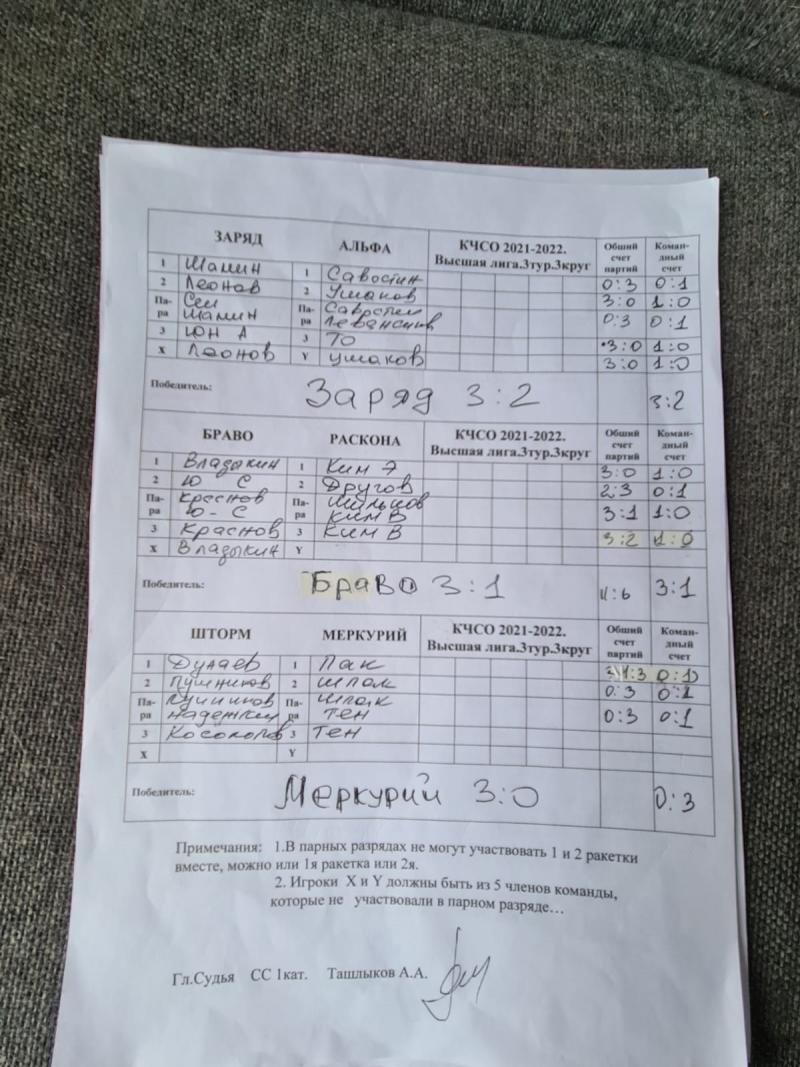 ЗАРЯД АЛЬФА КЧСО 2021-2022. Высшая лига.3тур.3круг Общий счет партий Коман-дный счет
1 Шамин 1 Савостин 0:3 0:1
2 Леонов 2 Ушаков 3:0 1:0
Па-ра Сен Шамин Па-ра Савостин 0:3 0:1
3 Юн А 3 ТО 3:0 1:0
X Леонов Y Ушаков 3:0 1:0
Победитель: Заряд 3:2 3:2
БРАВО РАСКОНА КЧСО 2021-2022. Высшая лига.3тур.3круг Общий счет партий Коман-дный счет
1 Владыкин 1 Ким Э 3:0 1:0
2 Ю С 2 Другов 2:3 0:1
Па-ра Краснов Ю-С Па-ра Мальцов Ким В 3:1 1:0
3 Краснов 3 Ким В 3:2 1:0
X Владыкин Y
Победитель: Браво 3:1 11:6 3:1
ШТОРМ МЕРКУРИЙ КЧСО 2021-2022. Высшая лига.3тур.3круг Общий счет партий Коман-дный счет
1 Дунаев 1 Пак 1:3 0:1
2 Пушников 2 Шпак 0:3 0:1
Па-ра Пушников Па-ра Шпак Тен 0:3 0:1
3 3 Тен
X Y
Победитель: Меркурий 3:0 0:3
Примечания: 1.В парных разрядах не могут участвовать 1 и 2 ракетки
вместе, можно или 1я ракетка или 2я.
2. Игроки X и Y должны быть из 5 членов команды,
которые не участвовали в парном разряде…
Гл.Судья СС 1кат. Ташлыков А.А.